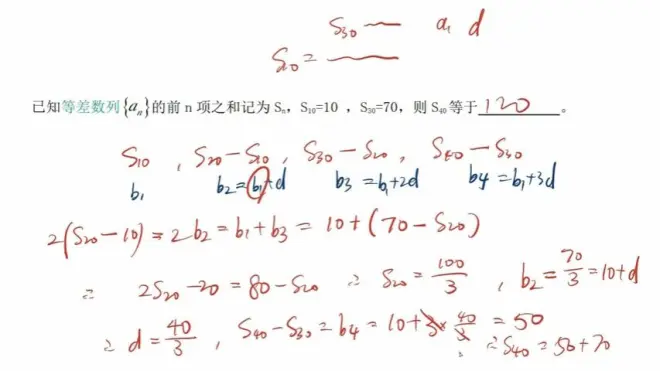 S₃₀ —— a₁ d
S₁₀ = ——
已知等差数列{aₙ}的前 n 项之和记为 Sₙ，S₁₀=10 ，S₃₀=70，则 S₄₀ 等于 120 。
S₁₀ , S₂₀－S₁₀, S₃₀－S₂₀, S₄₀－S₃₀
b₁ b₂=b₁+d b₃=b₁+2d b₄=b₁+3d
2(S₂₀－10)=2b₂=b₁+b₃=10+(70－S₂₀)
∴ 2S₂₀－20=80－S₂₀ ∴ S₂₀=100/3 , b₂=70/3=10+d
∴ d=40/3 , S₄₀－S₃₀=b₄=10+3×40/3=50
∴S₄₀=50+70